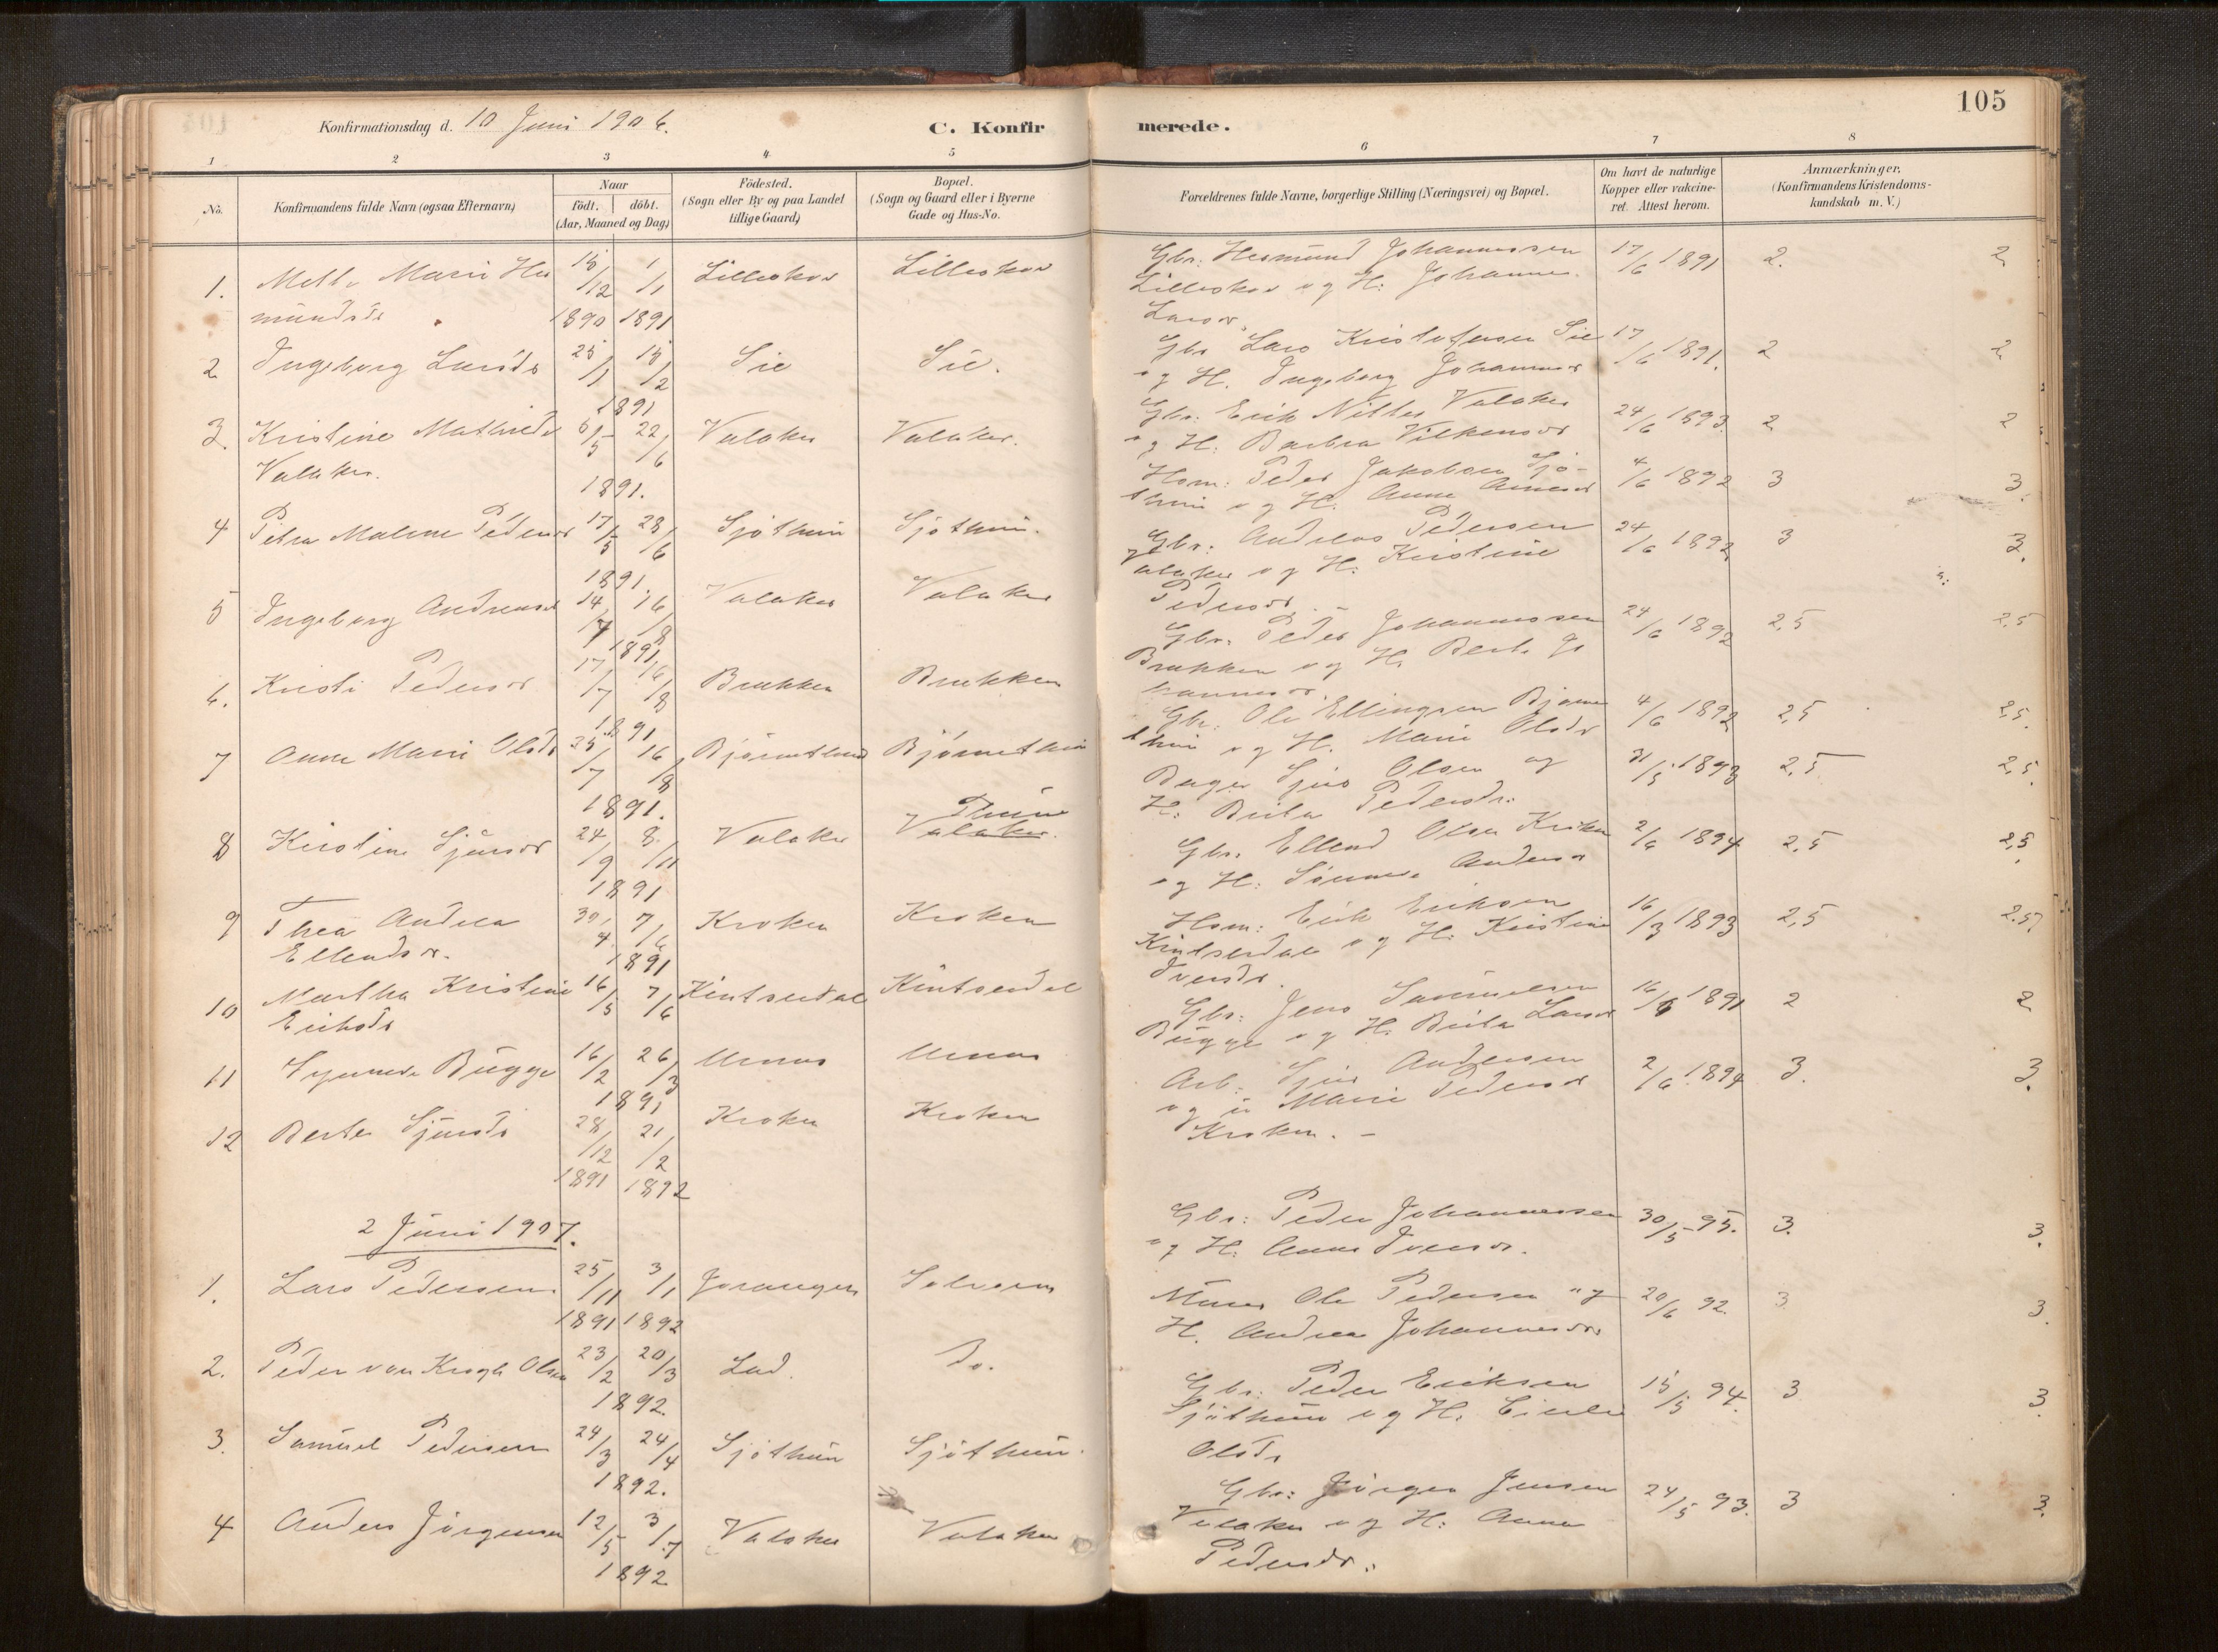 105
Konfirmationsdag d. 10 Juni 1906.
C. Konfirmerede.
1 2 3 4 5 6 7 8
No.
Konfirmandens fulde Navn (ogsaa Efternavn)
Naar
födt. döbt.
(Aar, Maaned og Dag)
Födested.
(Sogn eller By og paa Landet
tillige Gaard)
Bopæl.
(Sogn og Gaard eller i Byerne
Gade og Hus-No.
Forældrenes fulde Navne, borgerlige Stilling (Næringsvei) og Bopæl.
Om havt de naturlige
Kopper eller vakcine-
ret. Attest herom.
Anmærkninger.
(Konfirmandens Kristendoms-
kundskab m. V.)
1. Mette Marie Her
mundsdr 15/12 1890 1/1 1891 Lilleskov Lilleskov
Gbr. Hermund Johannessen
Lilleskov og H: Johanne
Larsdr. 17/6 1891 2. 2
2 Ingeborg Larsdr 25/1 15/2 1891 Sie Sie.
Gbr Lars Kristofersen Sie
og H. Ingeborg Johannesdr 17/6 1891. 2 2
3. Kristine Mathilde
Valaker. 6/5 22/6 1891. Valaker Valaker.
Gbr: Erik Nilsen Valaker
og H: Barbra Vilhemsdr 24/6 1893. 2 2
4 Petra Malene Pedersdr 17/5 28/6 1891. Sjøthun Sjøthun.
Hsm: Peder Jakobsen Sjø-
thun og H. Anna Arnesdr 4/6 1892 3 3.
5 Ingeborg Andreasdr 14/7 16/8 1891 Valaker Valaker
Gbr: Andreas Pedersen
Valaker og H: Kristine
Pedersdr. 24/6 1892 3 3.
6. Kristi Pedersdr 17/7 16/8 1891 Brækken Brækken
Gbr. Peder Johannessen
Brækken og H. Berte Jo
hannesdr. 24/6 1892 2,5 2,5
7 Anna Marie Olsdr 25/7 16/8 1891. Bjørnethun Bjørnethun
Gbr. Ole Ellingsen Bjørne
thun og H. Marie Olsdr 4/6 1892 2,5 2,5.
8 Kirstine Sjursdr 24/9 8/11 1891 Valaker Thun
Valaker.
Bager Sjur Olsen og
H: Brita Pedersdr: 31/5 1893 2,5 2,5.
9 Thea Andrea
Ellendsdr. 30/4 7/6 1891 Kroken Kroken
Gbr. Ellend Olsen Kroken
og H: Sønneva Andersdr 2/6 1894 2,5 2,5
10 Martha Kristine
Eriksdr 16/5 7/6 Kintserdal Kintserdal
Hsm: Erik Eriksen
Kintserdal og H: Kristine
Iversdr. 16/3 1893 2,5 2.5
11 Synneva Bugge 16/2 26/3 1891 Urnes Urnes
Gbr: Jens Samuelsen
Bugge og H. Brita Larsdr 16/6 1891 2 2
12 Berte Sjursdr 28/12 1891 21/2 1892 Kroken Kroken
Arb: Sjur Andersen
og Marie Pedersdr
Kroken. 2/6 1894 3. 3.
2 Juni 1907.
1. Lars Pedersen 25/11 1891 3/1 1892 Joranger Solvorn
Gbr: Peder Johannessen
og H: Anna Iversdr. 30/5 95. 3. 3.
2. Peder von Krogh Olsen 23/2 20/3 1892. Lad. Do.
Murer Ole Pedersen og
H. Andrea Johannesdr 20/6 92. 3 3.
3. Samuel Pedersen 24/3 24/4 1892. Sjøthun Sjøthun.
Gbr: Peder Eriksen
Sjøthun og H.
Olsdr 15/5 94. 3 3.
4 Anders Jørgensen 12/5 3/7 1892 Valaker Valaker
Gbr: Jørgen Jensen
Valaker og H: Anna
Pedersdr. 24/5 93. 3 3.